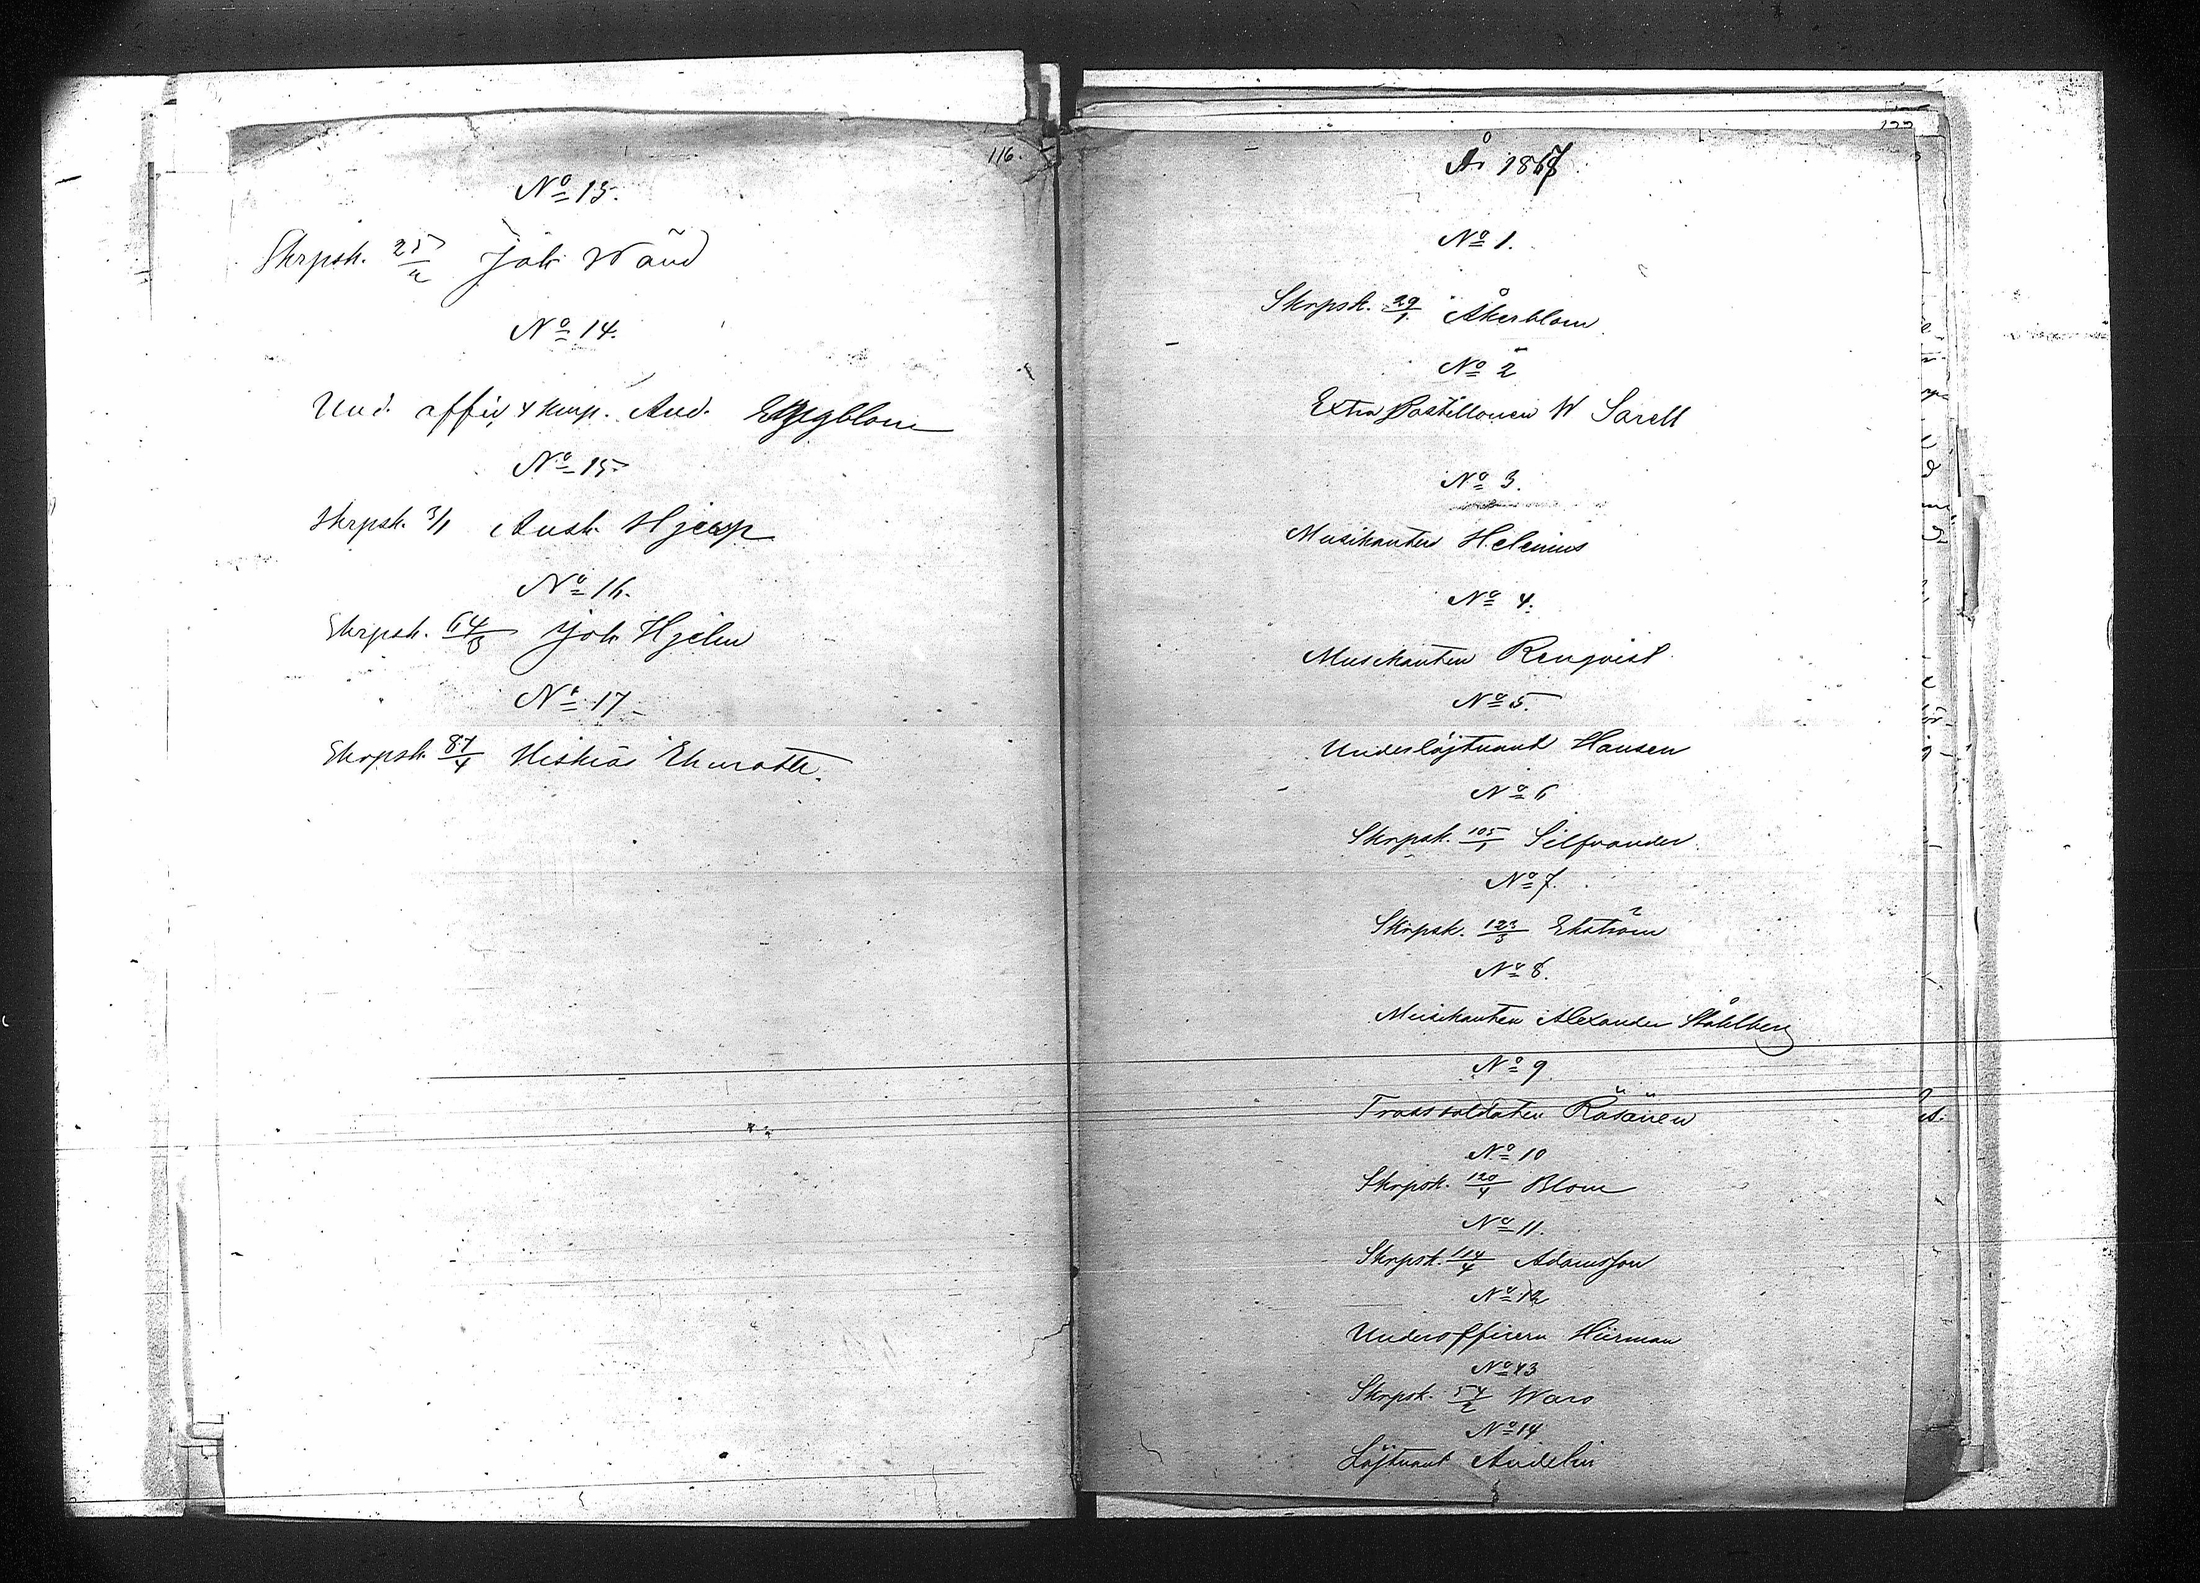 116.
No 13.
Skrpsk. 25/2 Joh Wänd
No 14.
Und. offic 4 komp. And. Eggblom
No 15
Skrpsk. 3/1 Aust. Hjerp
No 16.
Skrpsk. 64/3 Joh Hjelm
No 17
Skrpsk. 87/4 Hiskias Ekuroth.
År 1867
No 1.
Skrpsk. 29/1. Åkerblom
No 2
Extra Postillonen W Sarell
No 3.
Musikanten Helenius
No 4.
Musikanten Renqvist
No 5.
Underlöjtnand Hansen
No 6
Skrpsk. 105/1 Silfvander
No 7.
Skrpsk. 123/3 Ekström
No 8.
Musikanten Alexander Ståhlberg
No 9.
Trossoldaten Räsänen
No 10
Skrpsk. 120/4 Blom
No 11.
Skrpsk. 114/4 Adamsson
No 12
Underofficern Hürman
No 13
Skrpsk. 54/2 Waro
No 14
Löjtnant Andelin